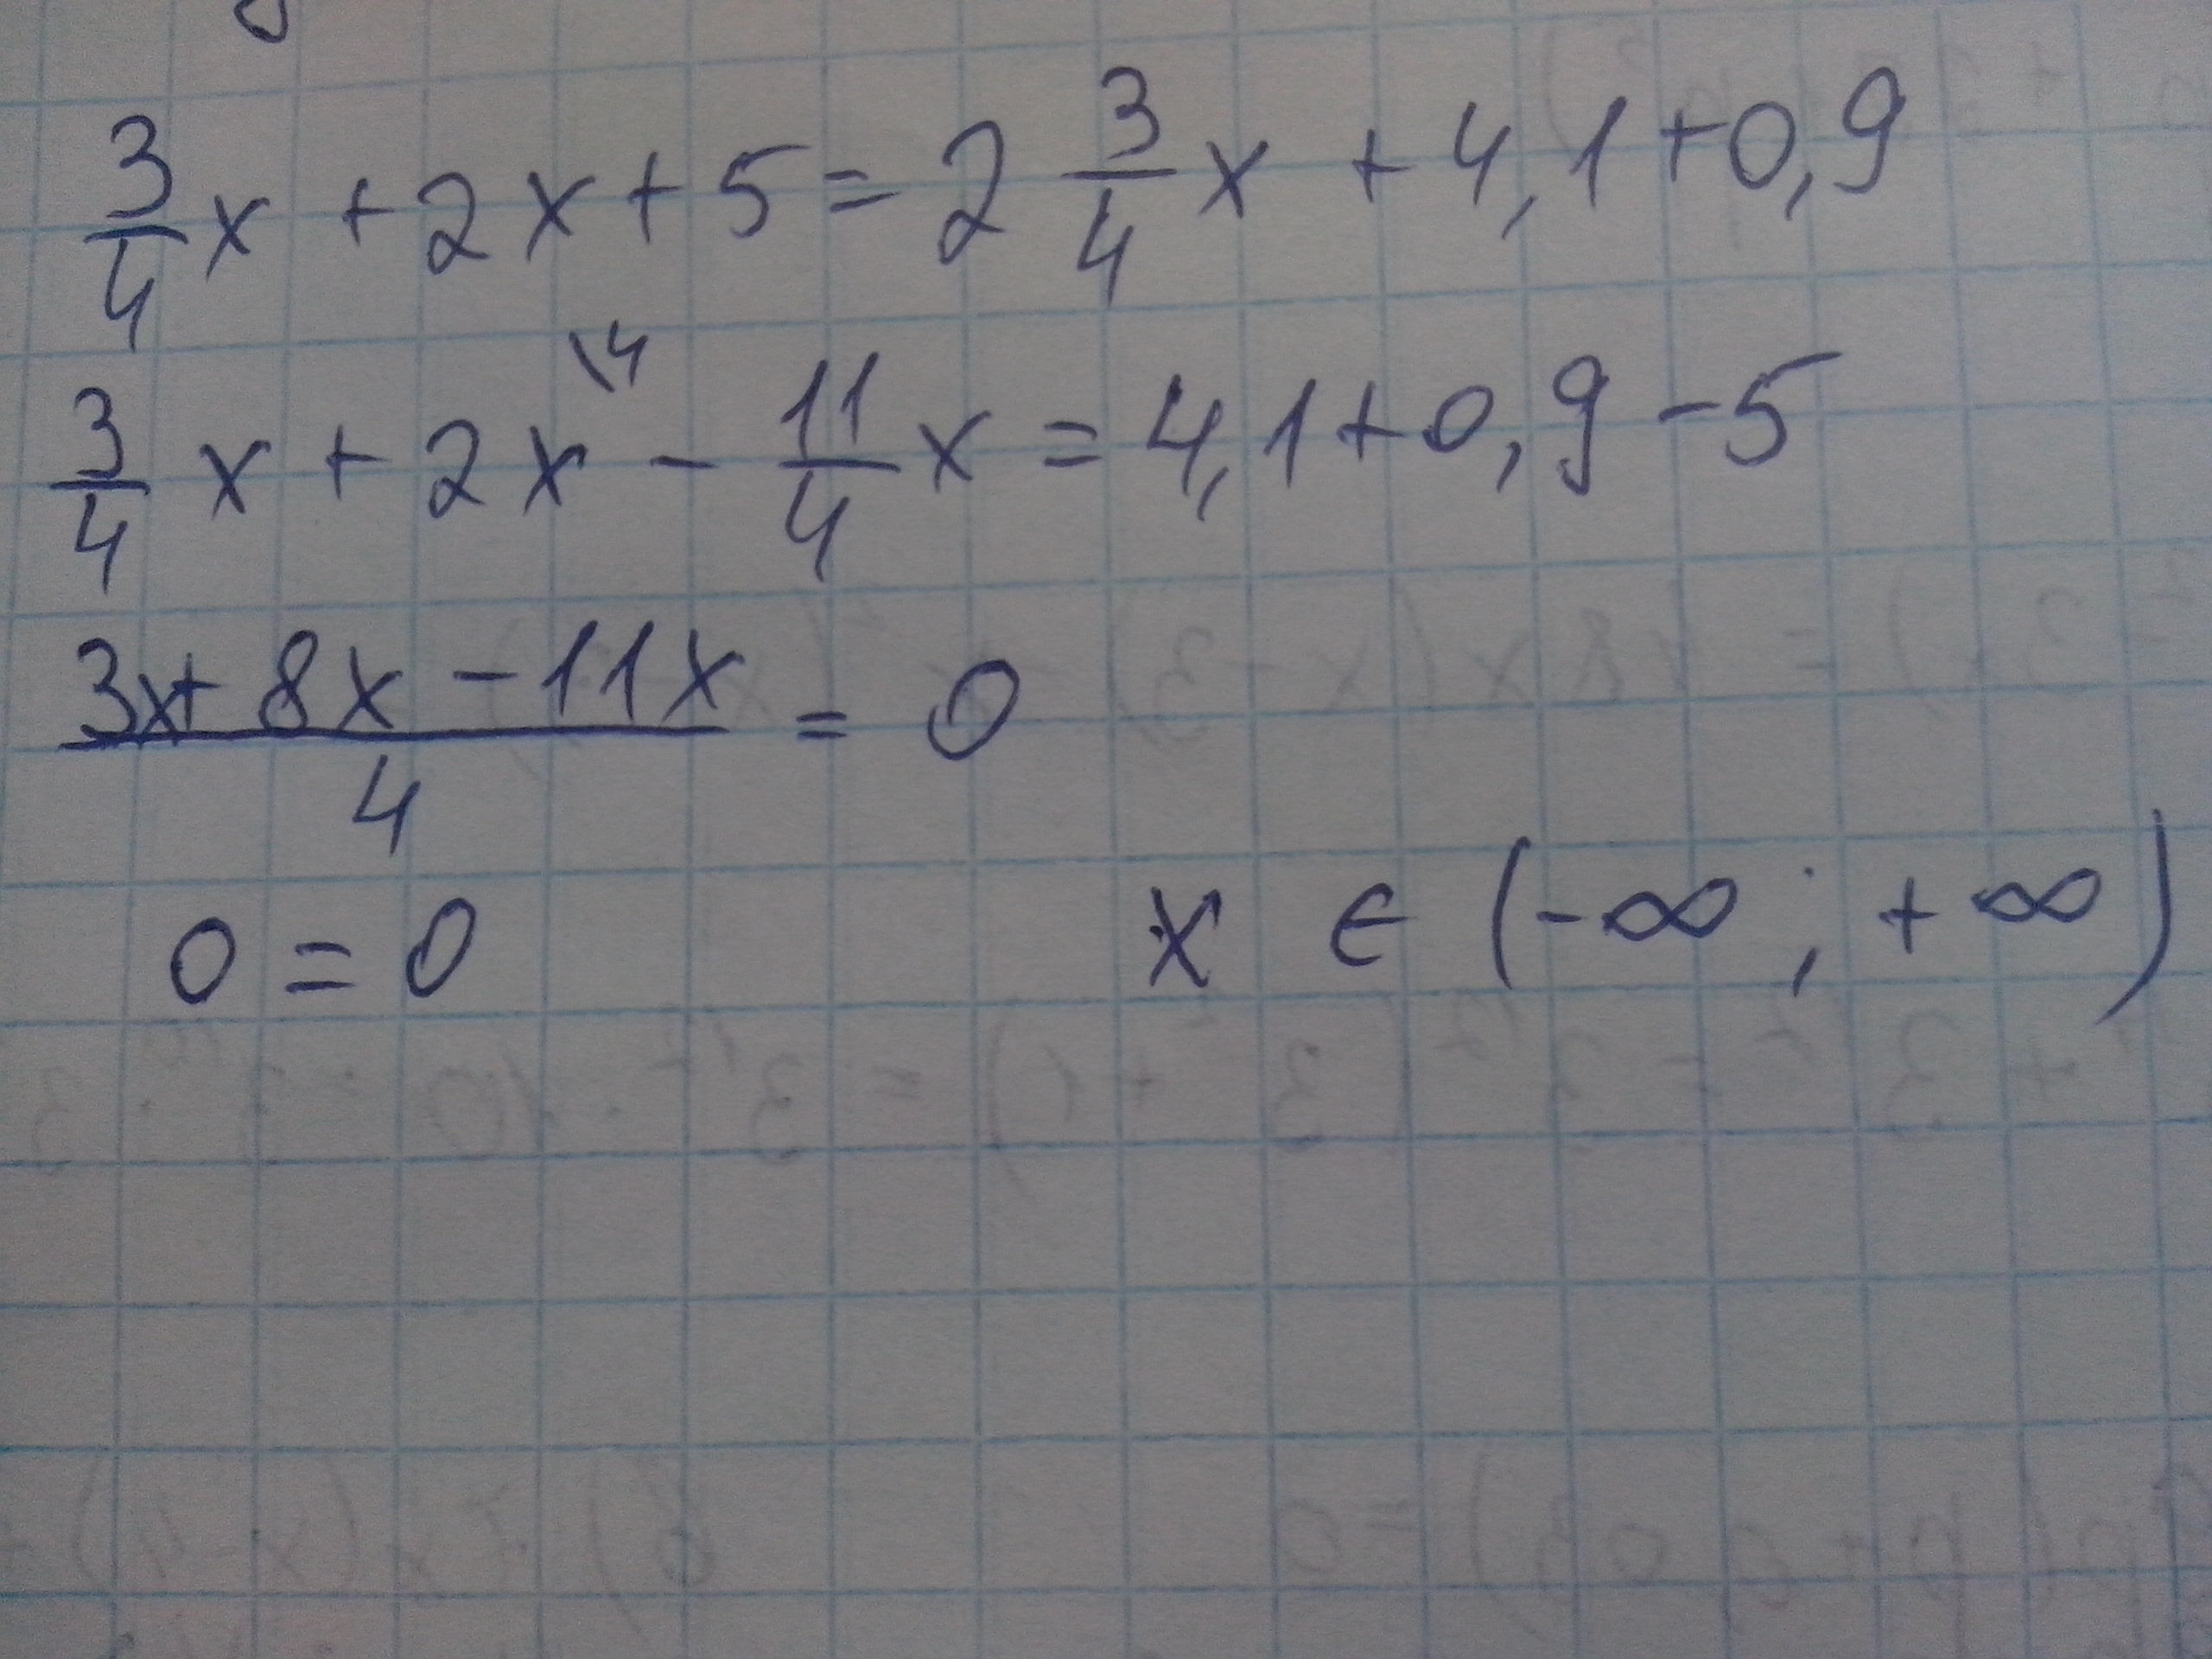 3/4 x + 2x + 5 = 2 3/4 x + 4,1 + 0,9
3/4 x + 2x \4 - 11/4 x = 4,1 + 0,9 - 5
(3x + 8x - 11x)/4 = 0
0 = 0 x ∈ (-∞; +∞)